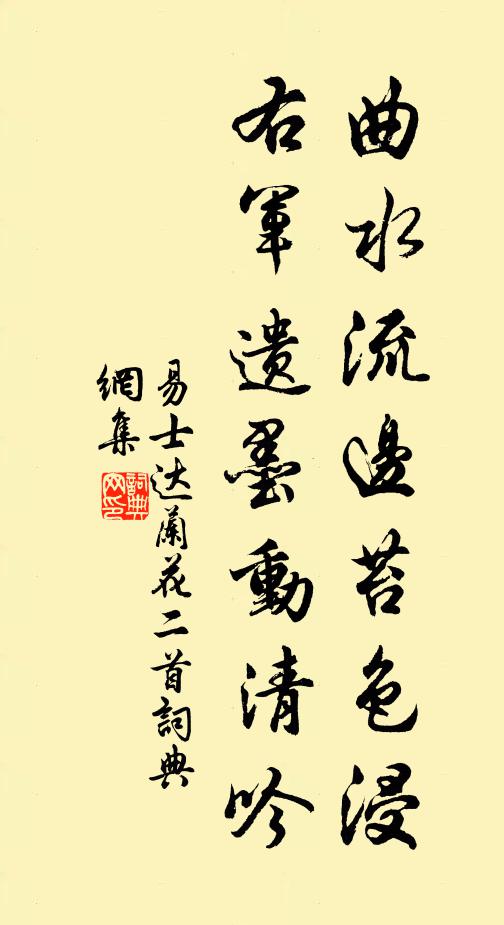 曲水流邊苔色浸
右軍遺墨動清吟
易士达蘭花二首詞典
網集
詞典
网印